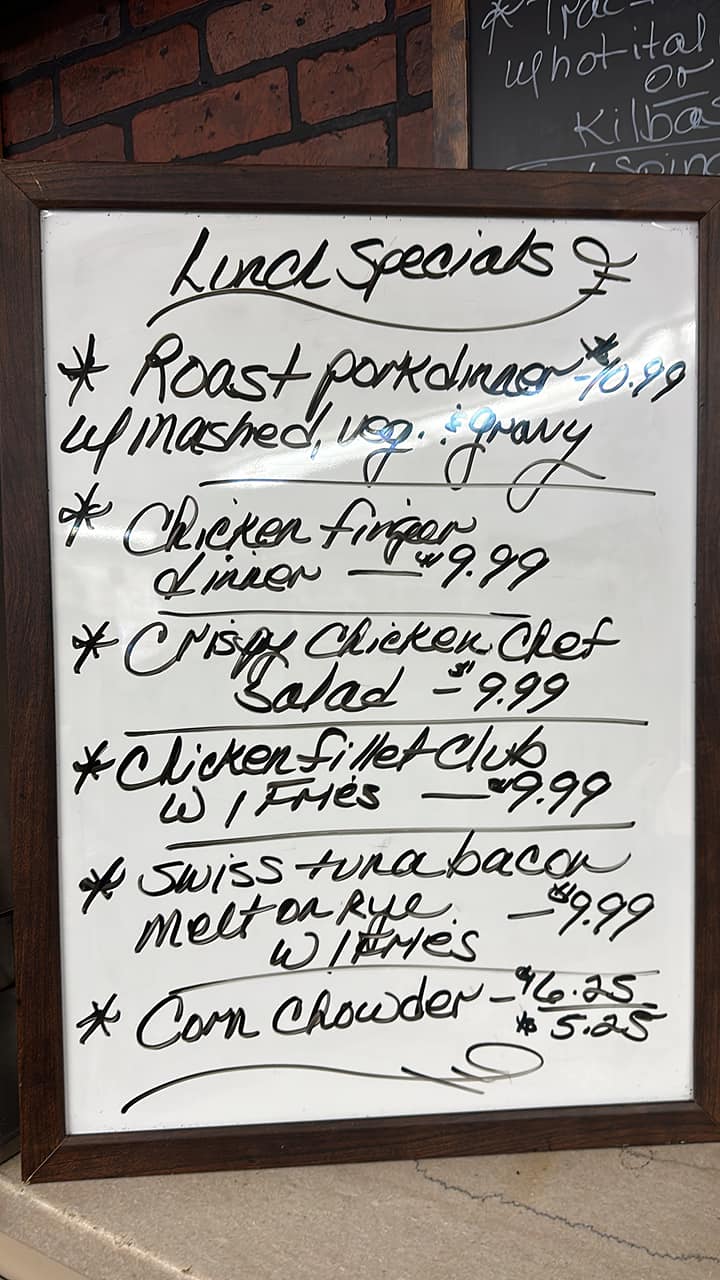 * Trac
w/hot ital
or
Kilba
Lunch Specials
* Roast pork dinner - $10.99
w/ mashed, veg. & gravy
* Chicken finger
dinner — $9.99
* Crispy Chicken Chef
Salad - $9.99
* Chicken fillet Club
W / Fries — $9.99
* Swiss tuna bacon
melt on Rye. — $9.99
W / Fries
* Corn Chowder - $6.25
$5.25